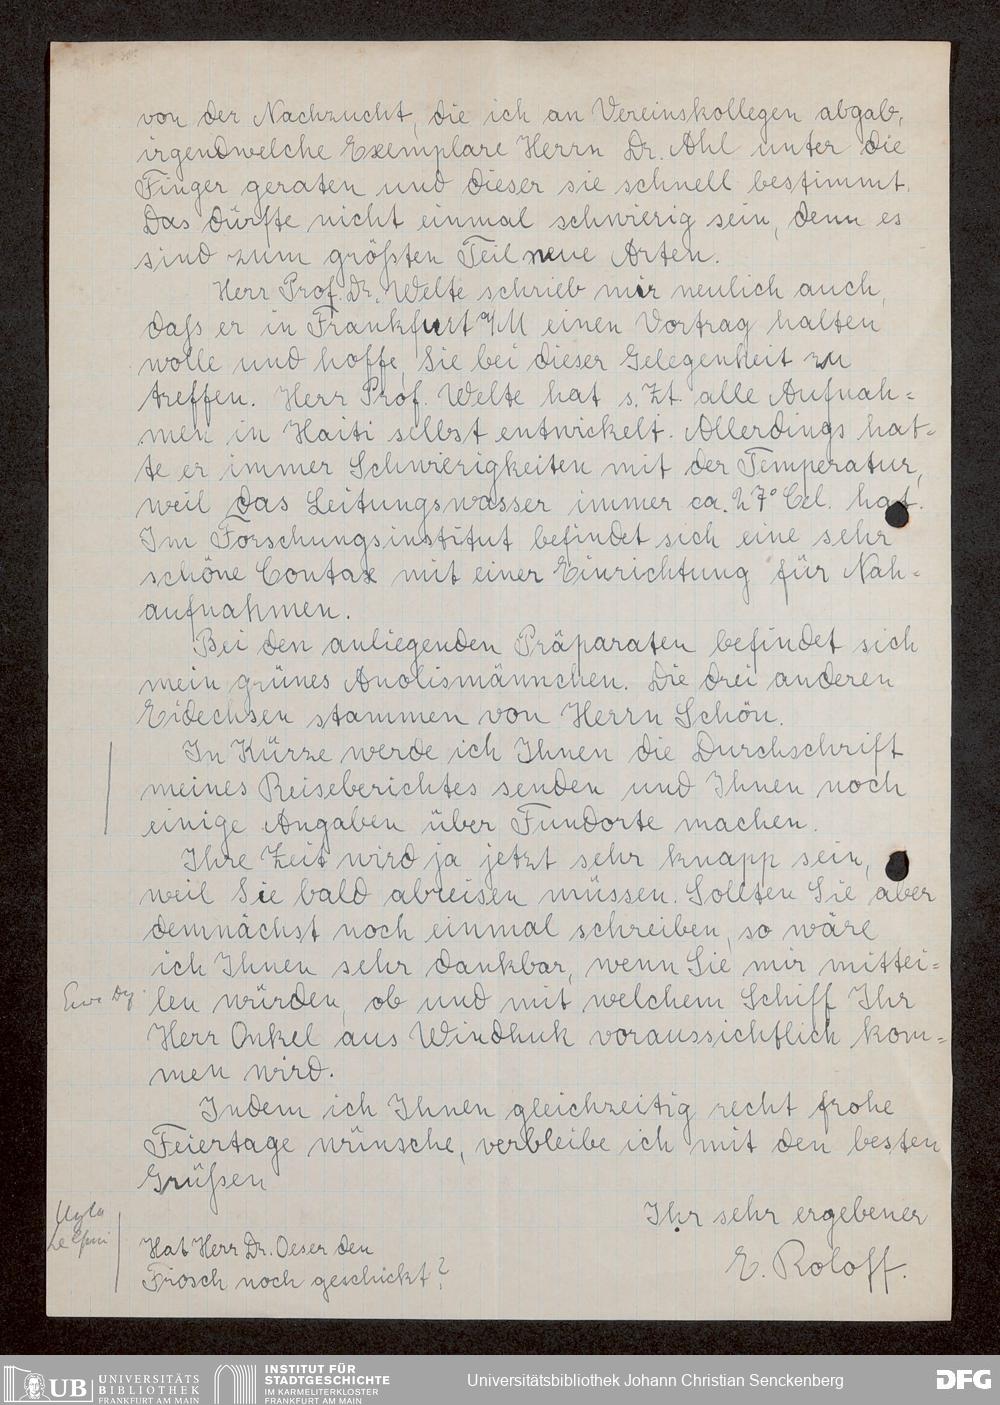 von der Nachzucht, die ich an Vereinskollegen abgab,
irgendwelche Exemplare Herrn Dr. Ahl unter die
Finger geraten und dieser sie schnell bestimmt.
Das dürfte nicht einmal schwierig sein, denn es
sind zum größten Teil neue Arten.
Herr Prof. Dr. Welte schrieb mir neulich auch,
daß er in Frankfurt a/M einen Vortrag halten
wolle und hoffe, Sie bei dieser Gelegenheit zu
treffen. Herr Prof. Welte hat s. Zt. alle Aufnah=
men in Haiti selbst entwickelt. Allerdings hat=
te er immer Schwierigkeiten mit der Temperatur,
weil das Leitungswasser immer ca. 27° Cel. hat.
Im Forschungsinstitut befindet sich eine sehr
schöne Contax mit einer Einrichtung für Nah=
aufnahmen.
Bei den anliegenden Präparaten befindet sich
mein grünes Anolismännchen. Die drei anderen
Eidechsen stammen von Herrn Schön.
In Kürze werde ich Ihnen die Durchschrift
meines Reiseberichtes senden und Ihnen noch
einige Angaben über Fundorte machen.
Ihre Zeit wird ja jetzt sehr knapp sein,
weil Sie bald abreisen müssen. Sollten Sie aber
demnächst noch einmal schreiben, so wäre
ich Ihnen sehr dankbar, wenn Sie mir mittei=
len würden, ob und mit welchem Schiff Ihr
Herr Onkel aus Windhuk voraussichtlich kom=
men wird.
Indem ich Ihnen gleichzeitig recht frohe
Feiertage wünsche, verbleibe ich mit den besten
Grüßen
Ihr sehr ergebener
E. Roloff.
Hyla
Hat Herr Dr. Oeser den
Frosch noch geschickt?
UB UNIVERSITÄTS
BIBLIOTHEK
FRANKFURT AM MAIN
INSTITUT FÜR
STADTGESCHICHTE
IM KARMELITERKLOSTER
FRANKFURT AM MAIN
Universitätsbibliothek Johann Christian Senckenberg
DFG